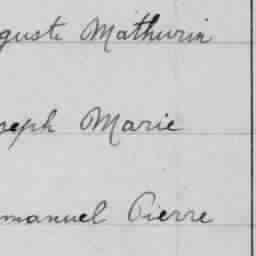 guste Mathurin
seph Marie
manuel Pierre